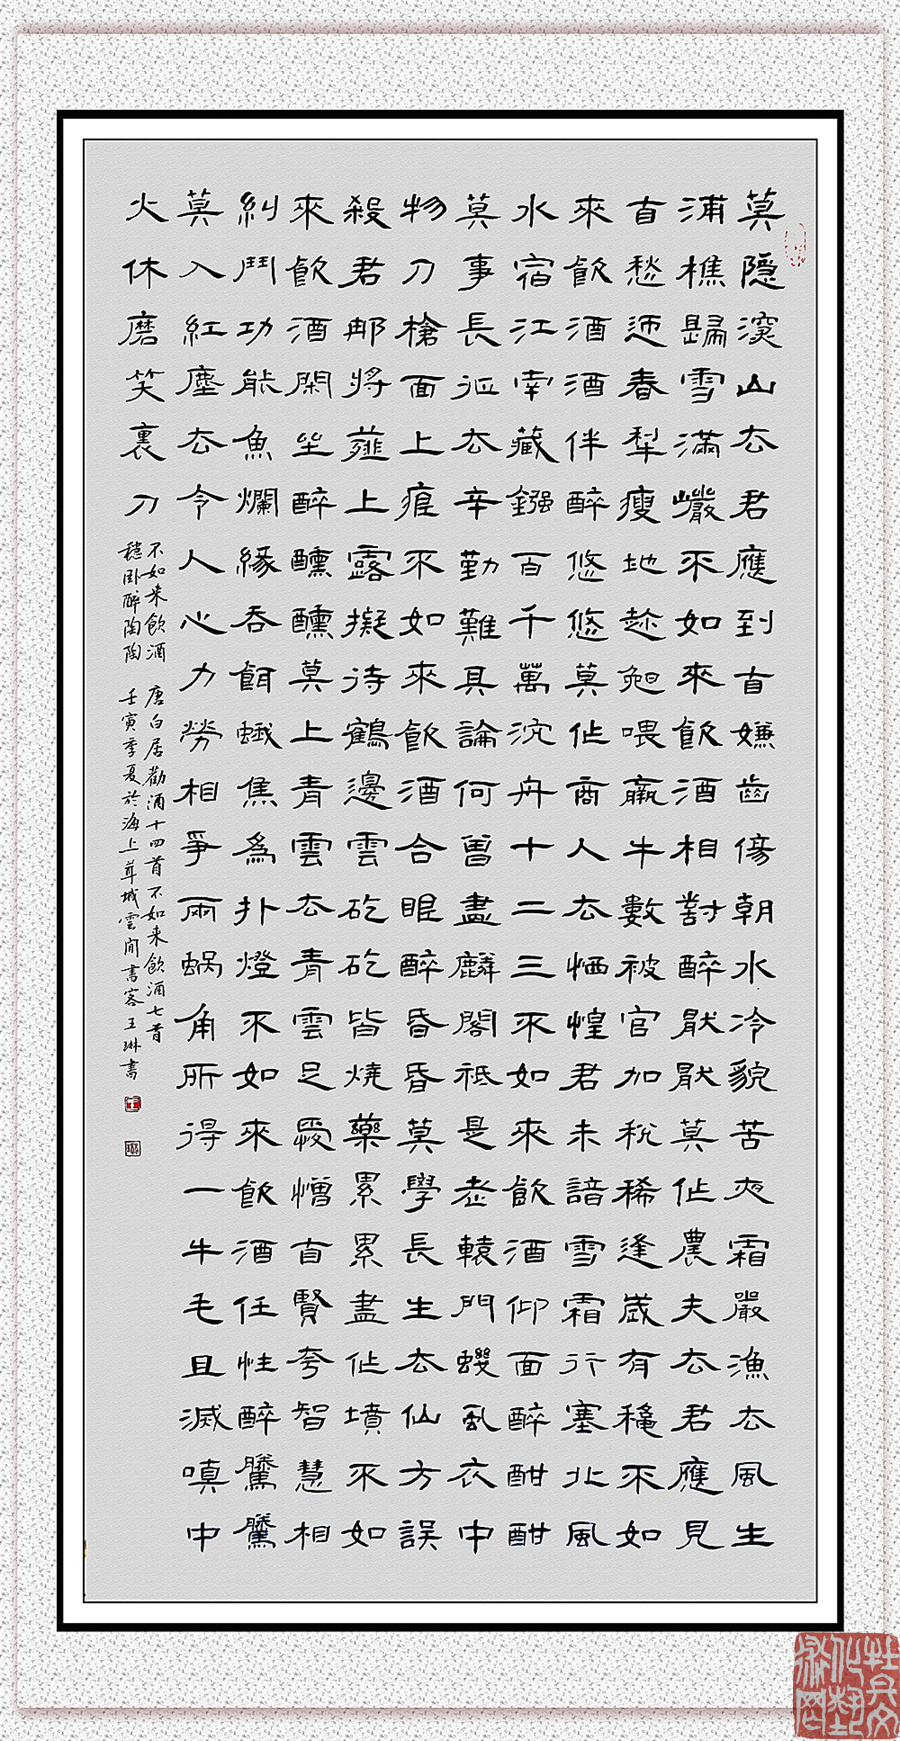 莫隱深山去君應到自嫌齒傍朝水冷貌苦夜霜嚴漁去風生
浦樵歸雪滿巖不如來飲酒相對醉厭厭莫作農夫去君應見
自愁迎春犁瘦地趁晚喂羸牛數被官加稅稀逢歲有穐不如
來飲酒酒伴醉悠悠莫作商人去恓惶君未諳雪霜行塞北風
水宿江南藏鏹百千萬沉舟十二三不如來飲酒仰面醉酣酣
莫事長征去辛勤難具論何曾盡麟閣祗是老轅門蟣虱衣中
物刀槍面上痕不如來飲酒合眼醉昏昏莫學長生去仙方誤
殺君那將薤上露擬待鶴邊雲矻矻皆燒藥累累盡作墳不如
來飲酒閑坐醉醺醺莫上青雲去青雲足愛憎自賢夸智慧相
糾鬥功能魚爛緣吞餌蛾焦為扑燈不如來飲酒任性醉騰騰
莫入紅塵去令人心力勞相爭兩蝸角所得一牛毛且滅嗔中
火休磨笑裏刀
不如来飲酒
穏卧醉陶陶
唐白居勸酒十四首不如来飲酒七首
壬寅季夏於海上茸城雲间書客王琳書